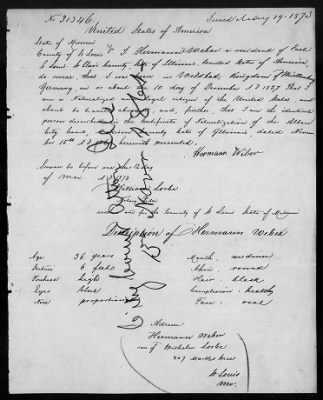 No 31346. Issued May 19. 1873
United States of America
State of Missouri
County of St Louis I, Hermann Weber a resident of East
St Louis St Clair County State of Illinois, United States of America,
do swear that I was born in Wildbad, Kingdom of Württemberg
Germany on or about the 10 day of December A.D. 1837 That I
am a Naturalized and loyal citizen of the United States, and
about to travel abroad; and, further, that I am the identical
person described in the Certificate of Naturalization of the Alton
City Court, County State of Illinois, dated Novem
ber 15th A.D. herewith
Hermann Weber
Sworn to before me this day
of May A.D. 1873
Lorbe
Notary Public
and for the County of St Louis State of Missouri
Description of Hermann Weber
Age 36 years Mouth medium
Stature 6 feet Chin round
Forehead high Hair black
Eyes Blue Complexion healthy
Nose proportional Face oval
Address
Hermann Weber
care of Wilhelm Lorbe
407 Market Street
St Louis
Mo.